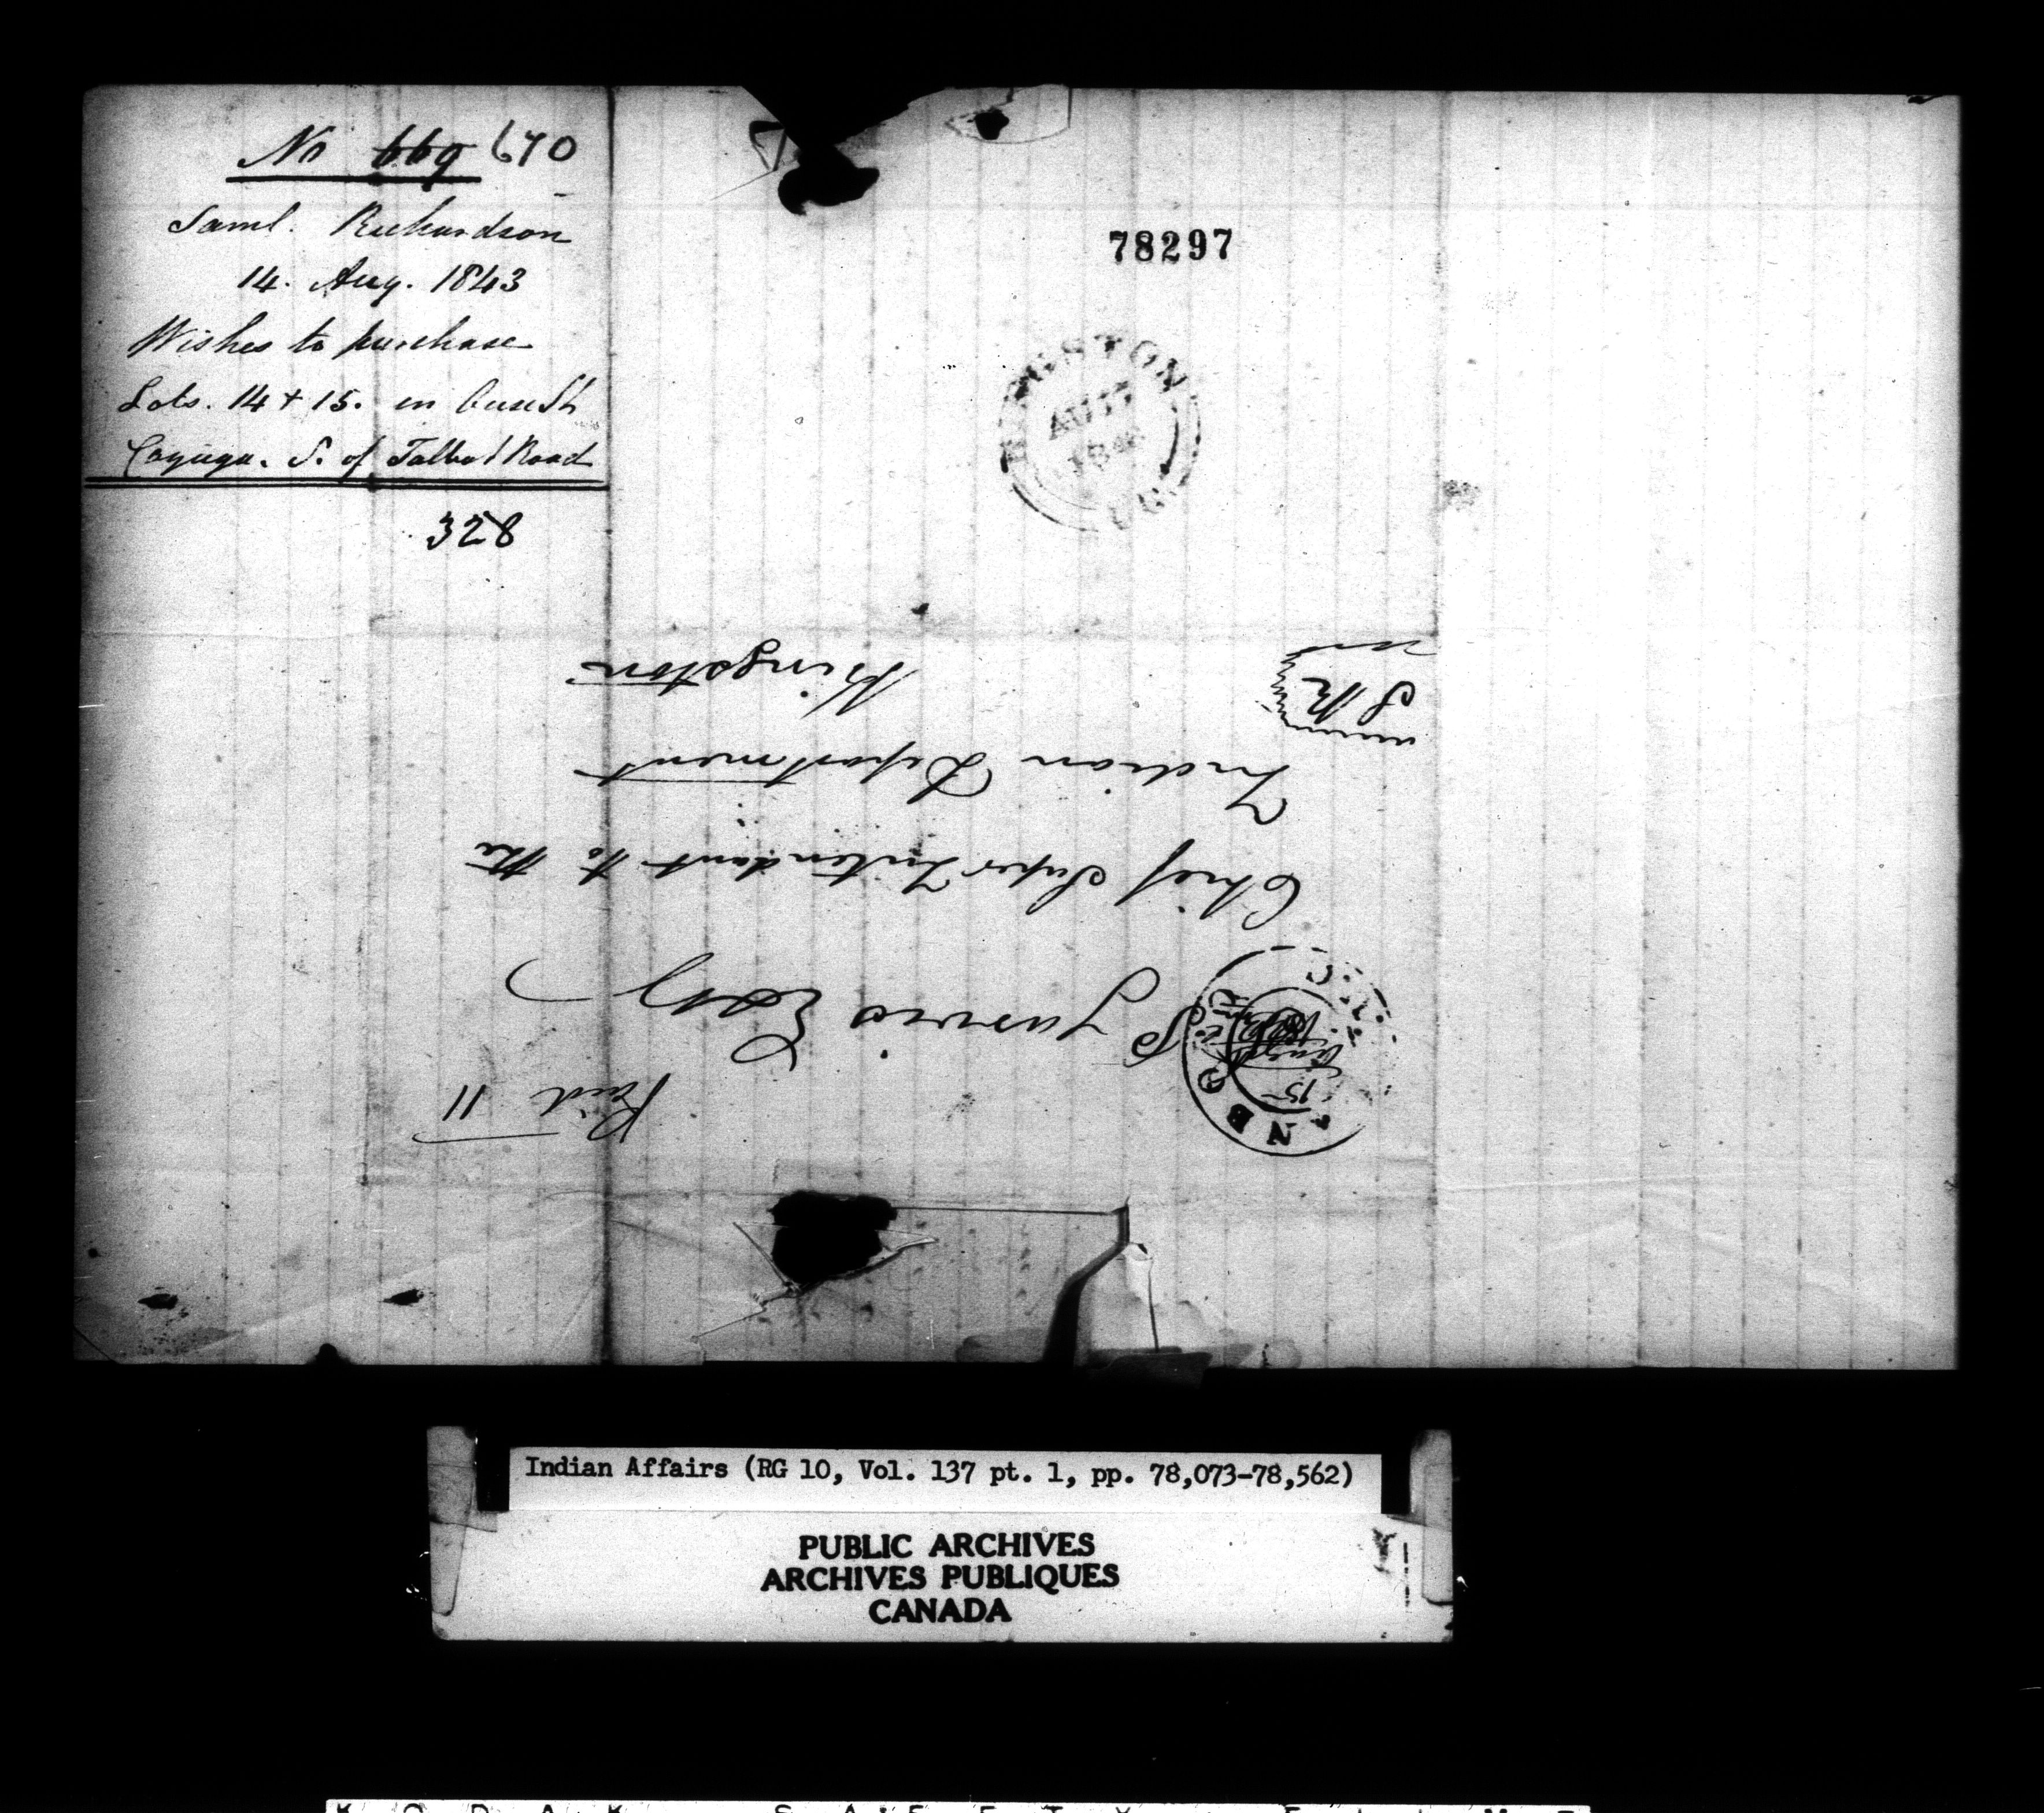 No 669 670
Saml. Richardson
14. Aug. 1843
Wishes to purchase
Lots. 14 + 15. in
Cayuga. S. of Talbot Road
328
78297
KINGSTON
AU 17
184
U.C.
Paid 11
S P Jarvis Esq
Chief Super Intendant to the
Indian Department
Kingston
CANBORO
15
U.C.
Indian Affairs (RG 10, Vol. 137 pt. 1, pp. 78,073-78,562)
PUBLIC ARCHIVES
ARCHIVES PUBLIQUES
CANADA
KODAK SAFETY FILM